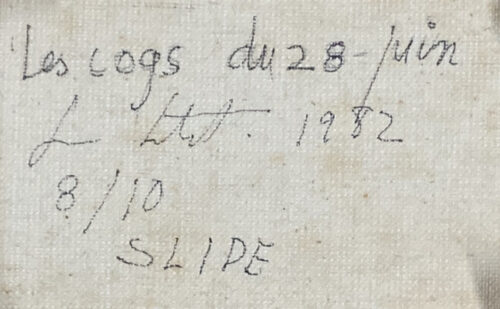 Les coqs du 28-juin
1982
8/10
SLIDE